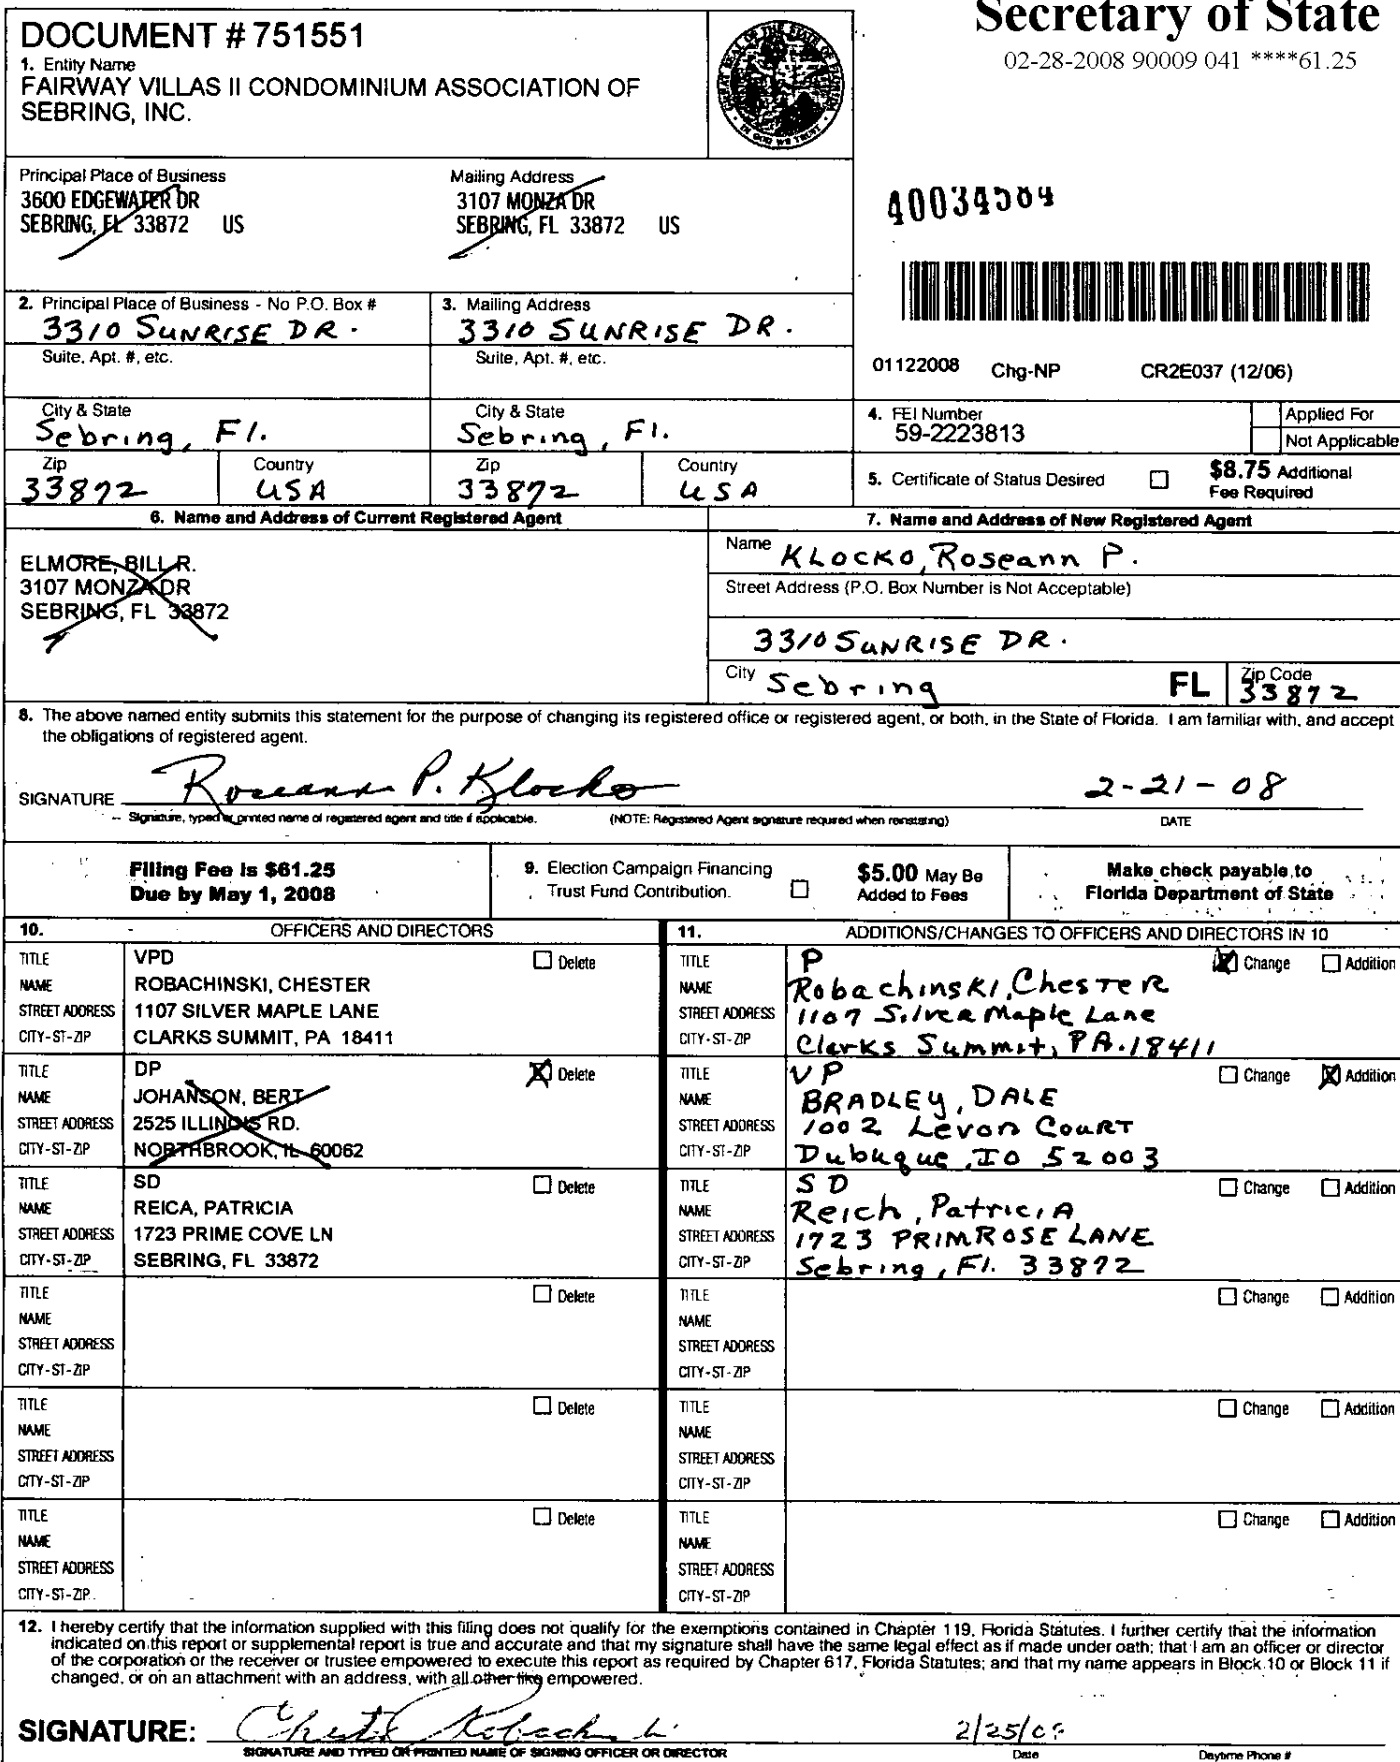 Secretary of State
02-28-2008 90009 041 ****61.25
DOCUMENT # 751551
1. Entity Name
FAIRWAY VILLAS II CONDOMINIUM ASSOCIATION OF
SEBRING, INC.
Principal Place of Business
3600 EDGEWATER DR
SEBRING, FL 33872 US
Mailing Address
3107 MONZA DR
SEBRING, FL 33872 US
2. Principal Place of Business - No P.O. Box #
3310 SUNRISE DR.
Suite, Apt. #, etc.
City & State
Sebring, Fl.
Zip
33872
Country
USA
3. Mailing Address
3310 SUNRISE DR.
Suite, Apt. #, etc.
City & State
Sebring, Fl.
Zip
33872
Country
USA
01122008 Chg-NP CR2E037 (12/06)
4. FEI Number
59-2223813
Applied For
Not Applicable
5. Certificate of Status Desired
$8.75 Additional
Fee Required
6. Name and Address of Current Registered Agent
ELMORE, BILL R.
3107 MONZA DR
SEBRING, FL 33872
7. Name and Address of New Registered Agent
Name KLOCKO, Roseann P.
Street Address (P.O. Box Number is Not Acceptable)
3310 SUNRISE DR.
City Sebring FL Zip Code
33872
8. The above named entity submits this statement for the purpose of changing its registered office or registered agent, or both, in the State of Florida. I am familiar with, and accept
the obligations of registered agent.
SIGNATURE Roseann P. Klocko 2-21-08
Signature, typed or printed name of registered agent and title if applicable. (NOTE: Registered Agent signature required when reinstating) DATE
Filing Fee is $61.25
Due by May 1, 2008
9. Election Campaign Financing
Trust Fund Contribution.
$5.00 May Be
Added to Fees
Make check payable to
Florida Department of State
10. OFFICERS AND DIRECTORS
TITLE VPD Delete
NAME ROBACHINSKI, CHESTER
STREET ADDRESS 1107 SILVER MAPLE LANE
CITY-ST-ZIP CLARKS SUMMIT, PA 18411
TITLE DP Delete
NAME JOHANSON, BERT
STREET ADDRESS 2525 ILLINOIS RD.
CITY-ST-ZIP NORTHBROOK, IL 60062
TITLE SD Delete
NAME REICA, PATRICIA
STREET ADDRESS 1723 PRIME COVE LN
CITY-ST-ZIP SEBRING, FL 33872
TITLE Delete
NAME
STREET ADDRESS
CITY-ST-ZIP
TITLE Delete
NAME
STREET ADDRESS
CITY-ST-ZIP
TITLE Delete
NAME
STREET ADDRESS
CITY-ST-ZIP
11. ADDITIONS/CHANGES TO OFFICERS AND DIRECTORS IN 10
TITLE P Change Addition
NAME Robachinski, Chester
STREET ADDRESS 1107 Silver Maple Lane
CITY-ST-ZIP Clarks Summit, PA. 18411
TITLE VP Change Addition
NAME BRADLEY, DALE
STREET ADDRESS 1002 Levon Court
CITY-ST-ZIP Dubuque, IO 52003
TITLE SD Change Addition
NAME Reich, Patricia
STREET ADDRESS 1723 PRIMROSE LANE
CITY-ST-ZIP Sebring, Fl. 33872
TITLE Change Addition
NAME
STREET ADDRESS
CITY-ST-ZIP
TITLE Change Addition
NAME
STREET ADDRESS
CITY-ST-ZIP
TITLE Change Addition
NAME
STREET ADDRESS
CITY-ST-ZIP
12. I hereby certify that the information supplied with this filing does not qualify for the exemptions contained in Chapter 119, Florida Statutes. I further certify that the information
indicated on this report or supplemental report is true and accurate and that my signature shall have the same legal effect as if made under oath; that I am an officer or director
of the corporation or the receiver or trustee empowered to execute this report as required by Chapter 617, Florida Statutes; and that my name appears in Block 10 or Block 11 if
changed, or on an attachment with an address, with all other like empowered.
SIGNATURE: 2/25/08
SIGNATURE AND TYPED OR PRINTED NAME OF SIGNING OFFICER OR DIRECTOR Date Daytime Phone #